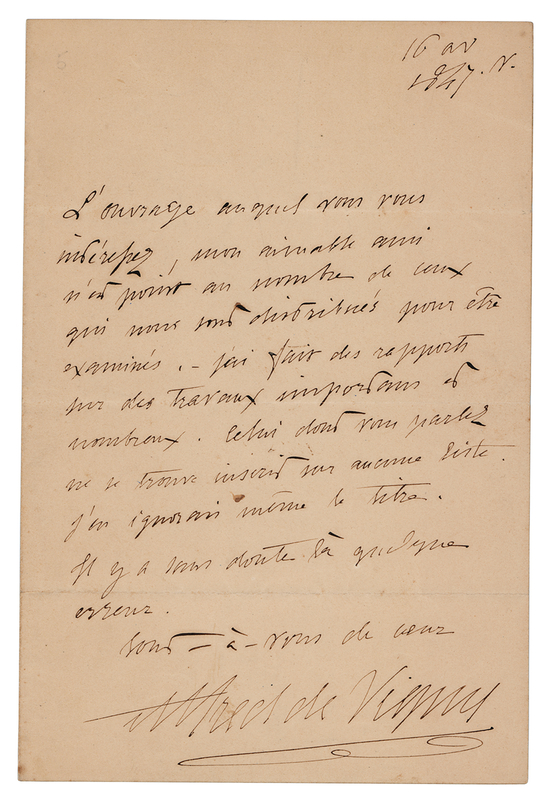 16 av
1847. v.
L'ouvrage auquel vous vous
intéressez, mon aimable ami
n'est point au nombre de ceux
qui nous sont distribués pour être
examinés. - j'ai fait des rapports
sur des travaux importans et
nombreux. Celui dont vous parlez
ne se trouve inscrit sur aucune liste.
j'en ignorais même le titre.
Il y a sans doute là quelque
erreur.
tout - à - vous de cœur
Alfred de Vigny